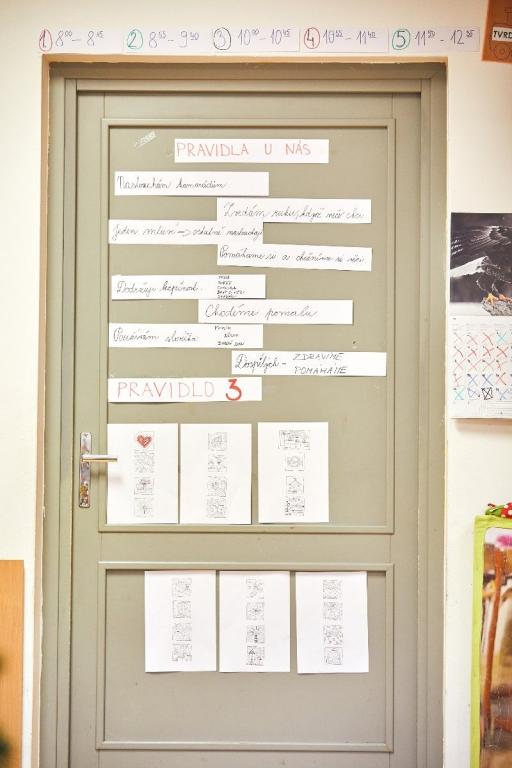 1 8⁰⁰ - 8⁴⁵ 2 8⁵⁵ - 9⁴⁰ 3 10⁰⁰ - 10⁴⁵ 4 10⁵⁵ - 11⁴⁰ 5 11⁵⁰ - 12³⁵
TVRD
PRAVIDLA U NÁS
Naslouchám kamarádům
Zvedám ruku, když něco chci
Jeden mluví → ostatní naslouchají
Pomáháme si a chráníme si věci
Dodržuji
Chodíme pomalu
Používám slovíčka
PROSÍM
DĚKUJI
DOBRÝ DEN
Dospělých - ZDRAVÍME
POMÁHÁME
PRAVIDLO 3